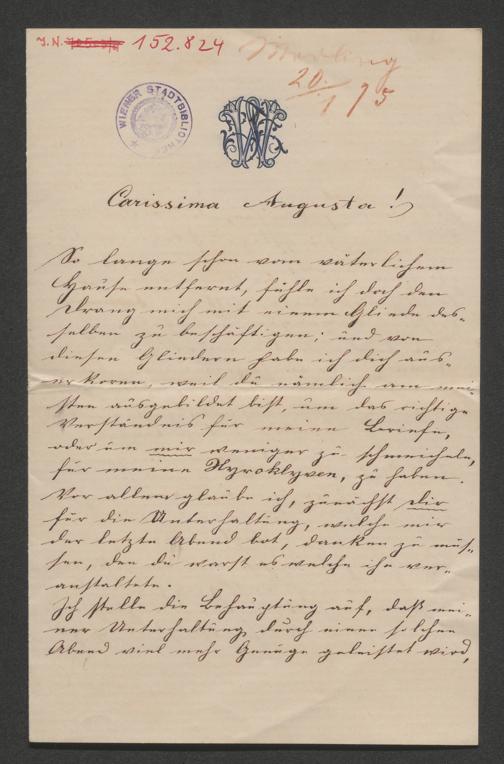 J.N. 152.824
Mödling
20./1 75
WIENER STADTBIBLIOTHEK
Carissima Augusta!
So lange schon vom väterlichem
Hause entfernt, fühle ich doch den
Drang mich mit einem Gliede des-
selben zu beschäftigen; und von
diesen Gliedern habe ich dich aus-
erkoren, weil du nämlich am mei-
sten ausgebildet bist, um das richtige
Verständnis für meine Briefe,
oder um mir weniger zu schmeicheln,
für meine Hyroklyven, zu haben.
Vor allem glaube ich, zunächst dir
für die Unterhaltung, welche mir
der letzte Abend bot, danken zu müs-
sen, den du warst es welche ihn ver-
anstaltete.
Ich stelle die Behauptung auf, daß mei-
ner Unterhaltung durch einen solchen
Abend viel mehr Genüge geleistet wird,